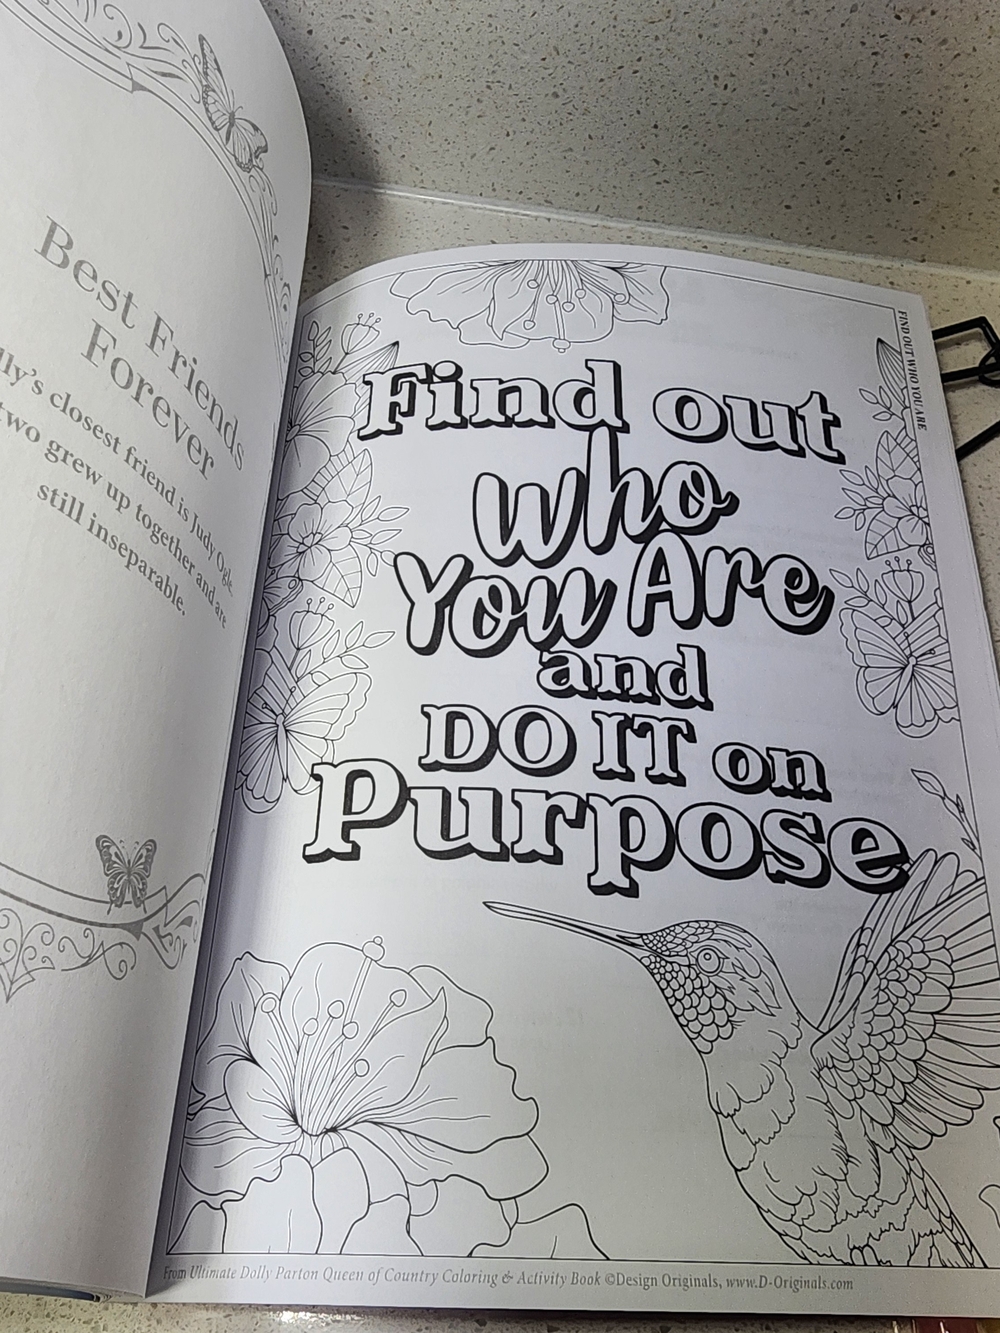 Best Friends
Forever
lly's closest friend is Judy Ogle.
two grew up together and are
still inseparable.
FIND OUT WHO YOU ARE
Find out
who
You Are
and
DO IT on
Purpose
From Ultimate Dolly Parton Queen of Country Coloring & Activity Book ©Design Originals, www.D-Originals.com